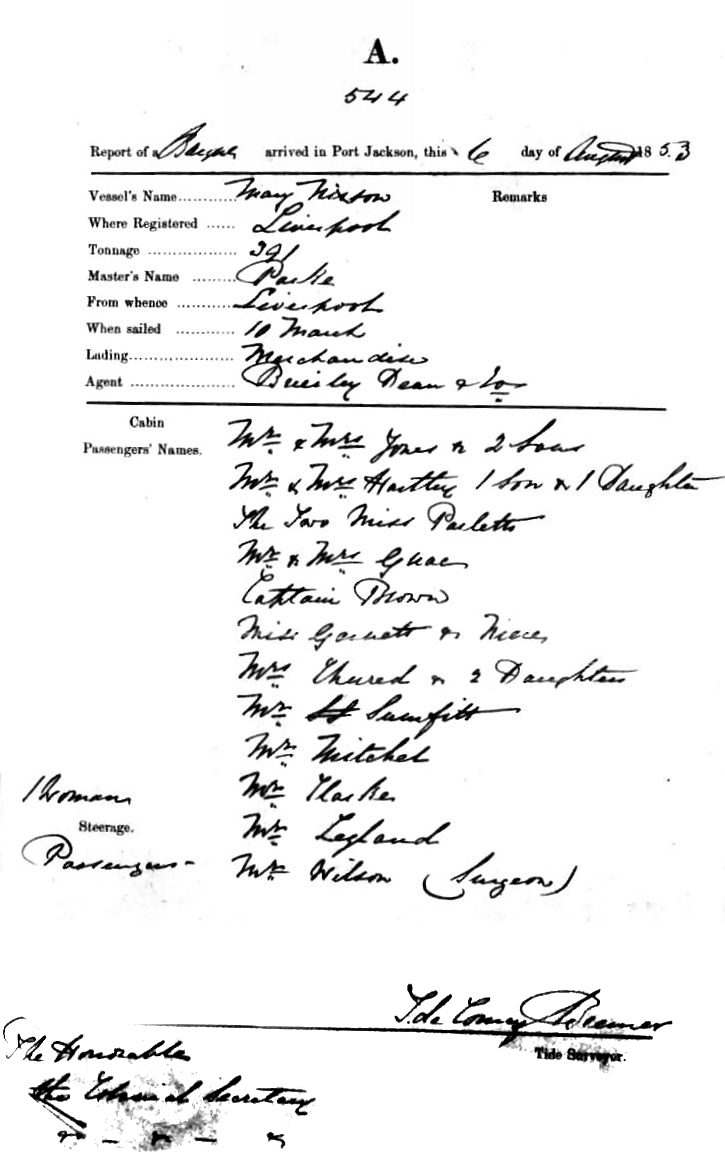 A.
544
Report of a Barque arrived in Port Jackson, this 6 day of August 1853
Vessel's Name Mary Nixson Remarks
Where Registered Liverpool
Tonnage 391
Master's Name Parke
From whence Liverpool
When sailed 10 March
Lading Merchandise
Agent Brierley Dean & Co
Cabin
Passengers' Names.
Mr. & Mrs Jones & 2 Sons
Mr. & Mrs Hartley 1 Son & 1 Daughter
The Two Miss
Mr. & Mrs
Captain Brown
Miss Garnett & Niece
Mrs & 2 Daughters
Mr. Sumfitt
Mr. Mitchel
Mr.
Mr. Legland
Mr. Wilson (Surgeon)
1 Woman
Steerage.
Passengers
Tide Surveyor.
The Honorable
the Colonial Secretary